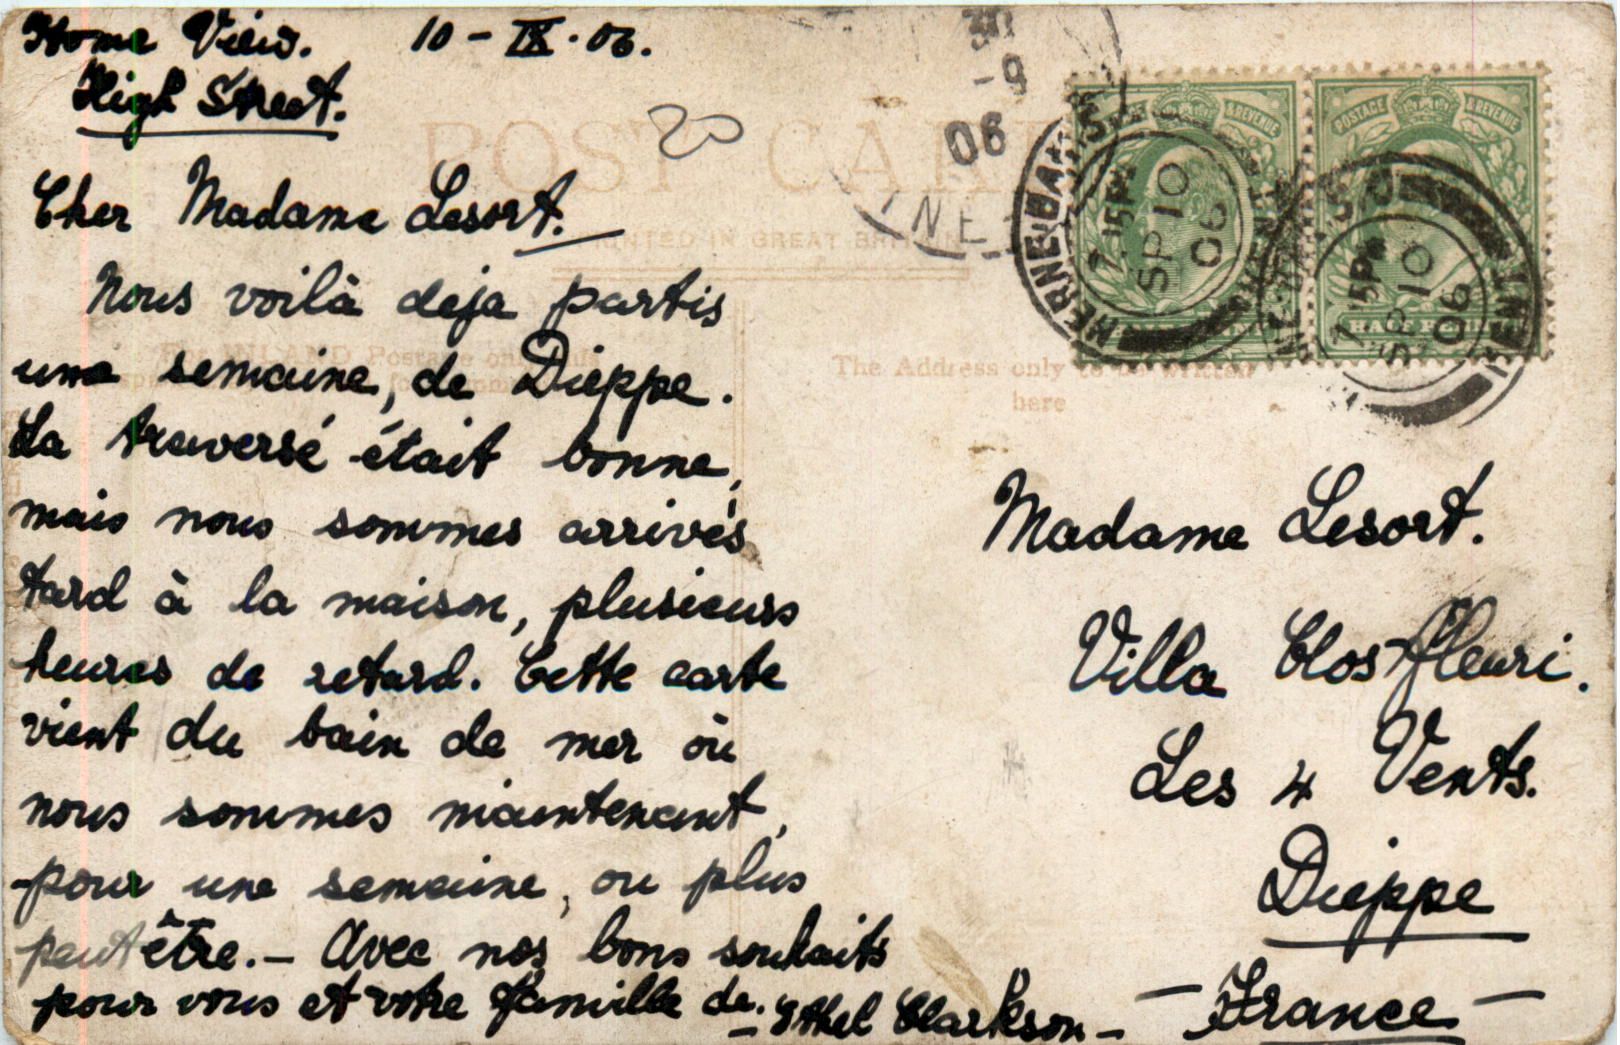 Home View. 10 - IX. 06.
High Street.
20
POST CARD
PRINTED IN GREAT BRITAIN
Cher Madame Lesort.
Nous voilà deja partis
une semaine, de Dieppe.
La traversé était bonne,
mais nous sommes arrivés
tard à la maison, plusieurs
heures de retard. Cette carte
vient du bain de mer où
nous sommes maintenant,
pour une semaine, ou plus
peut être. — Avec nos bons souhaits
pour vous et votre famille de.
— Ethel Clarkson —
For INLAND Postage only this
-9
06
POSTAGE & REVENUE
POSTAGE & REVENUE
HALF PENNY
HERNE BAY S.O
7.15PM
SP 10
06
KENT
7.15PM
SP 10
06
KENT
The Address only to be written
here
Madame Lesort.
Villa Clos-fleuri.
Les 4 Vents.
Dieppe
— France —